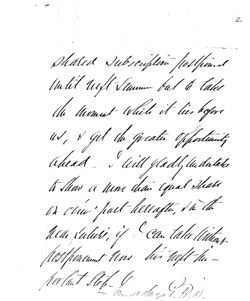 2
shared subscription postponed
until next summer but to take
the moment while it lies before
us, & get the greater opportunity
ahead — I will gladly undertake
to share a more than equal share
on our part hereafter, & in the
near future, if I can take without
postponement now this next im-
portant step. Y